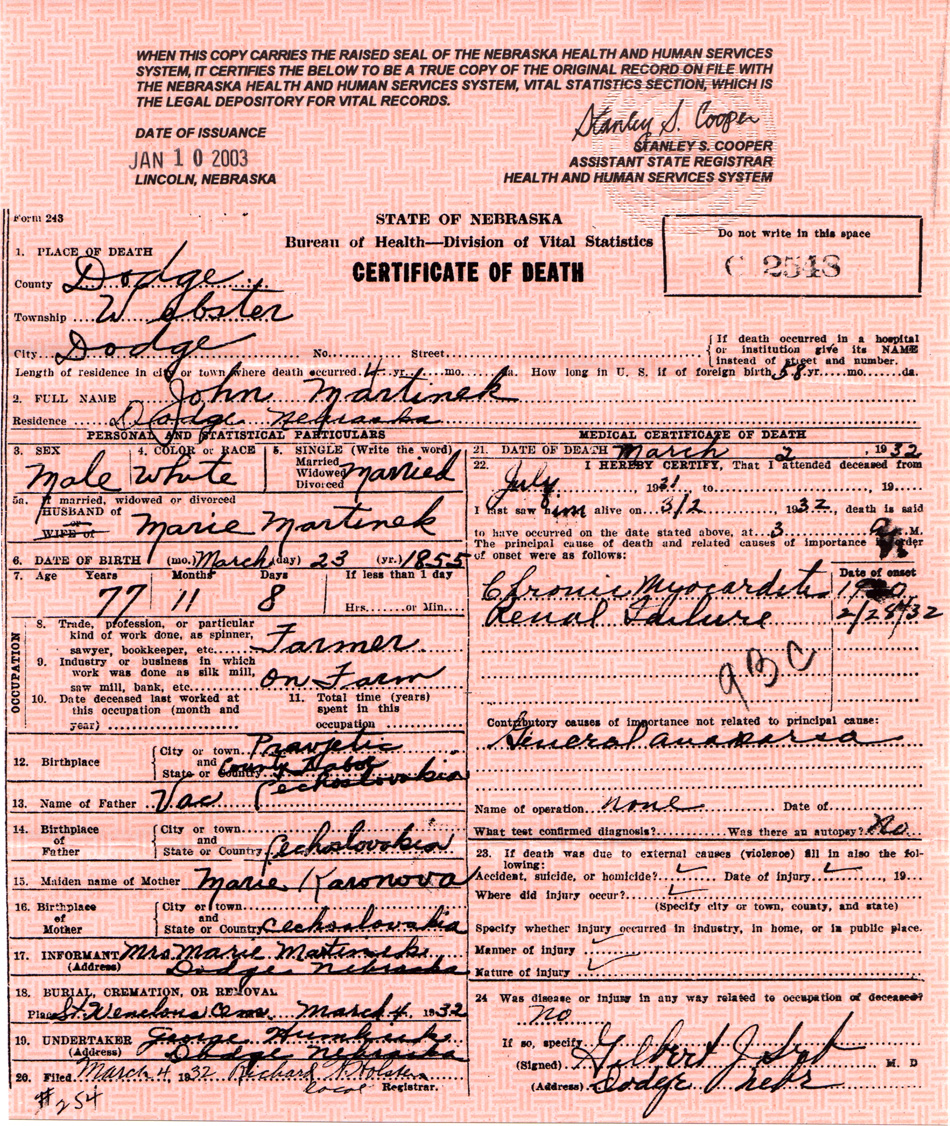 WHEN THIS COPY CARRIES THE RAISED SEAL OF THE NEBRASKA HEALTH AND HUMAN SERVICES
SYSTEM, IT CERTIFIES THE BELOW TO BE A TRUE COPY OF THE ORIGINAL RECORD ON FILE WITH
THE NEBRASKA HEALTH AND HUMAN SERVICES SYSTEM, VITAL STATISTICS SECTION, WHICH IS
THE LEGAL DEPOSITORY FOR VITAL RECORDS.
DATE OF ISSUANCE
JAN 10 2003
LINCOLN, NEBRASKA
Stanley S. Cooper
STANLEY S. COOPER
ASSISTANT STATE REGISTRAR
HEALTH AND HUMAN SERVICES SYSTEM
Form 243
STATE OF NEBRASKA
Bureau of Health—Division of Vital Statistics
CERTIFICATE OF DEATH
Do not write in this space
C 2548
1. PLACE OF DEATH
County Dodge
Township Webster
City Dodge No. Street
If death occurred in a hospital
or institution give its NAME
instead of street and number.
Length of residence in city or town where death occurred 4 yr. mo. da. How long in U. S. if of foreign birth 58 yr. mo. da.
2. FULL NAME John Martinek
Residence Dodge Nebraska
PERSONAL AND STATISTICAL PARTICULARS
3. SEX Male
4. COLOR or RACE White
5. SINGLE (Write the word)
Married
Widowed
Divorced Married
5a. If married, widowed or divorced
HUSBAND of
or
WIFE of Marie Martinek
6. DATE OF BIRTH (mo.) March (day) 23 (yr.) 1855
7. Age Years Months Days If less than 1 day
77 11 8 Hrs. or Min.
OCCUPATION
8. Trade, profession, or particular
kind of work done, as spinner,
sawyer, bookkeeper, etc. Farmer
9. Industry or business in which
work was done as silk mill,
saw mill, bank, etc. on Farm
10. Date deceased last worked at
this occupation (month and
year)
11. Total time (years)
spent in this
occupation
12. Birthplace
City or town
and County Tabor
State or Country Cechoslovakia
13. Name of Father Vac
14. Birthplace
of
Father
City or town
and
State or Country Cechoslovakia
15. Maiden name of Mother Marie Karonova
16. Birthplace
of
Mother
City or town
and
State or Country Cechoslovakia
17. INFORMANT Mrs Marie Martinek
(Address) Dodge Nebraska
18. BURIAL, CREMATION, OR REMOVAL
Place March 4 1932
19. UNDERTAKER George
(Address) Dodge Nebraska
20. Filed March 4 1932 Richard
local Registrar.
#254
MEDICAL CERTIFICATE OF DEATH
21. DATE OF DEATH March 2, 1932
22. I HEREBY CERTIFY, That I attended deceased from
July, 1931 to, 19
I last saw him alive on 3/2 1932, death is said
to have occurred on the date stated above, at 3 M.
The principal cause of death and related causes of importance order
of onset were as follows:
Date of onset
Chronic Myocarditis
Renal Failure 2/28/32
9BC
Contributory causes of importance not related to principal cause:
General anasarca
Name of operation none Date of
What test confirmed diagnosis? Was there an autopsy? No
23. If death was due to external causes (violence) fill in also the fol-
lowing:
Accident, suicide, or homicide? Date of injury, 19
Where did injury occur?
(Specify city or town, county, and state)
Specify whether injury occurred in industry, in home, or in public place.
Manner of injury
Nature of injury
24 Was disease or injury in any way related to occupation of deceased?
No
If so, specify
(Signed) Gilbert J M. D
(Address) Dodge Nebr